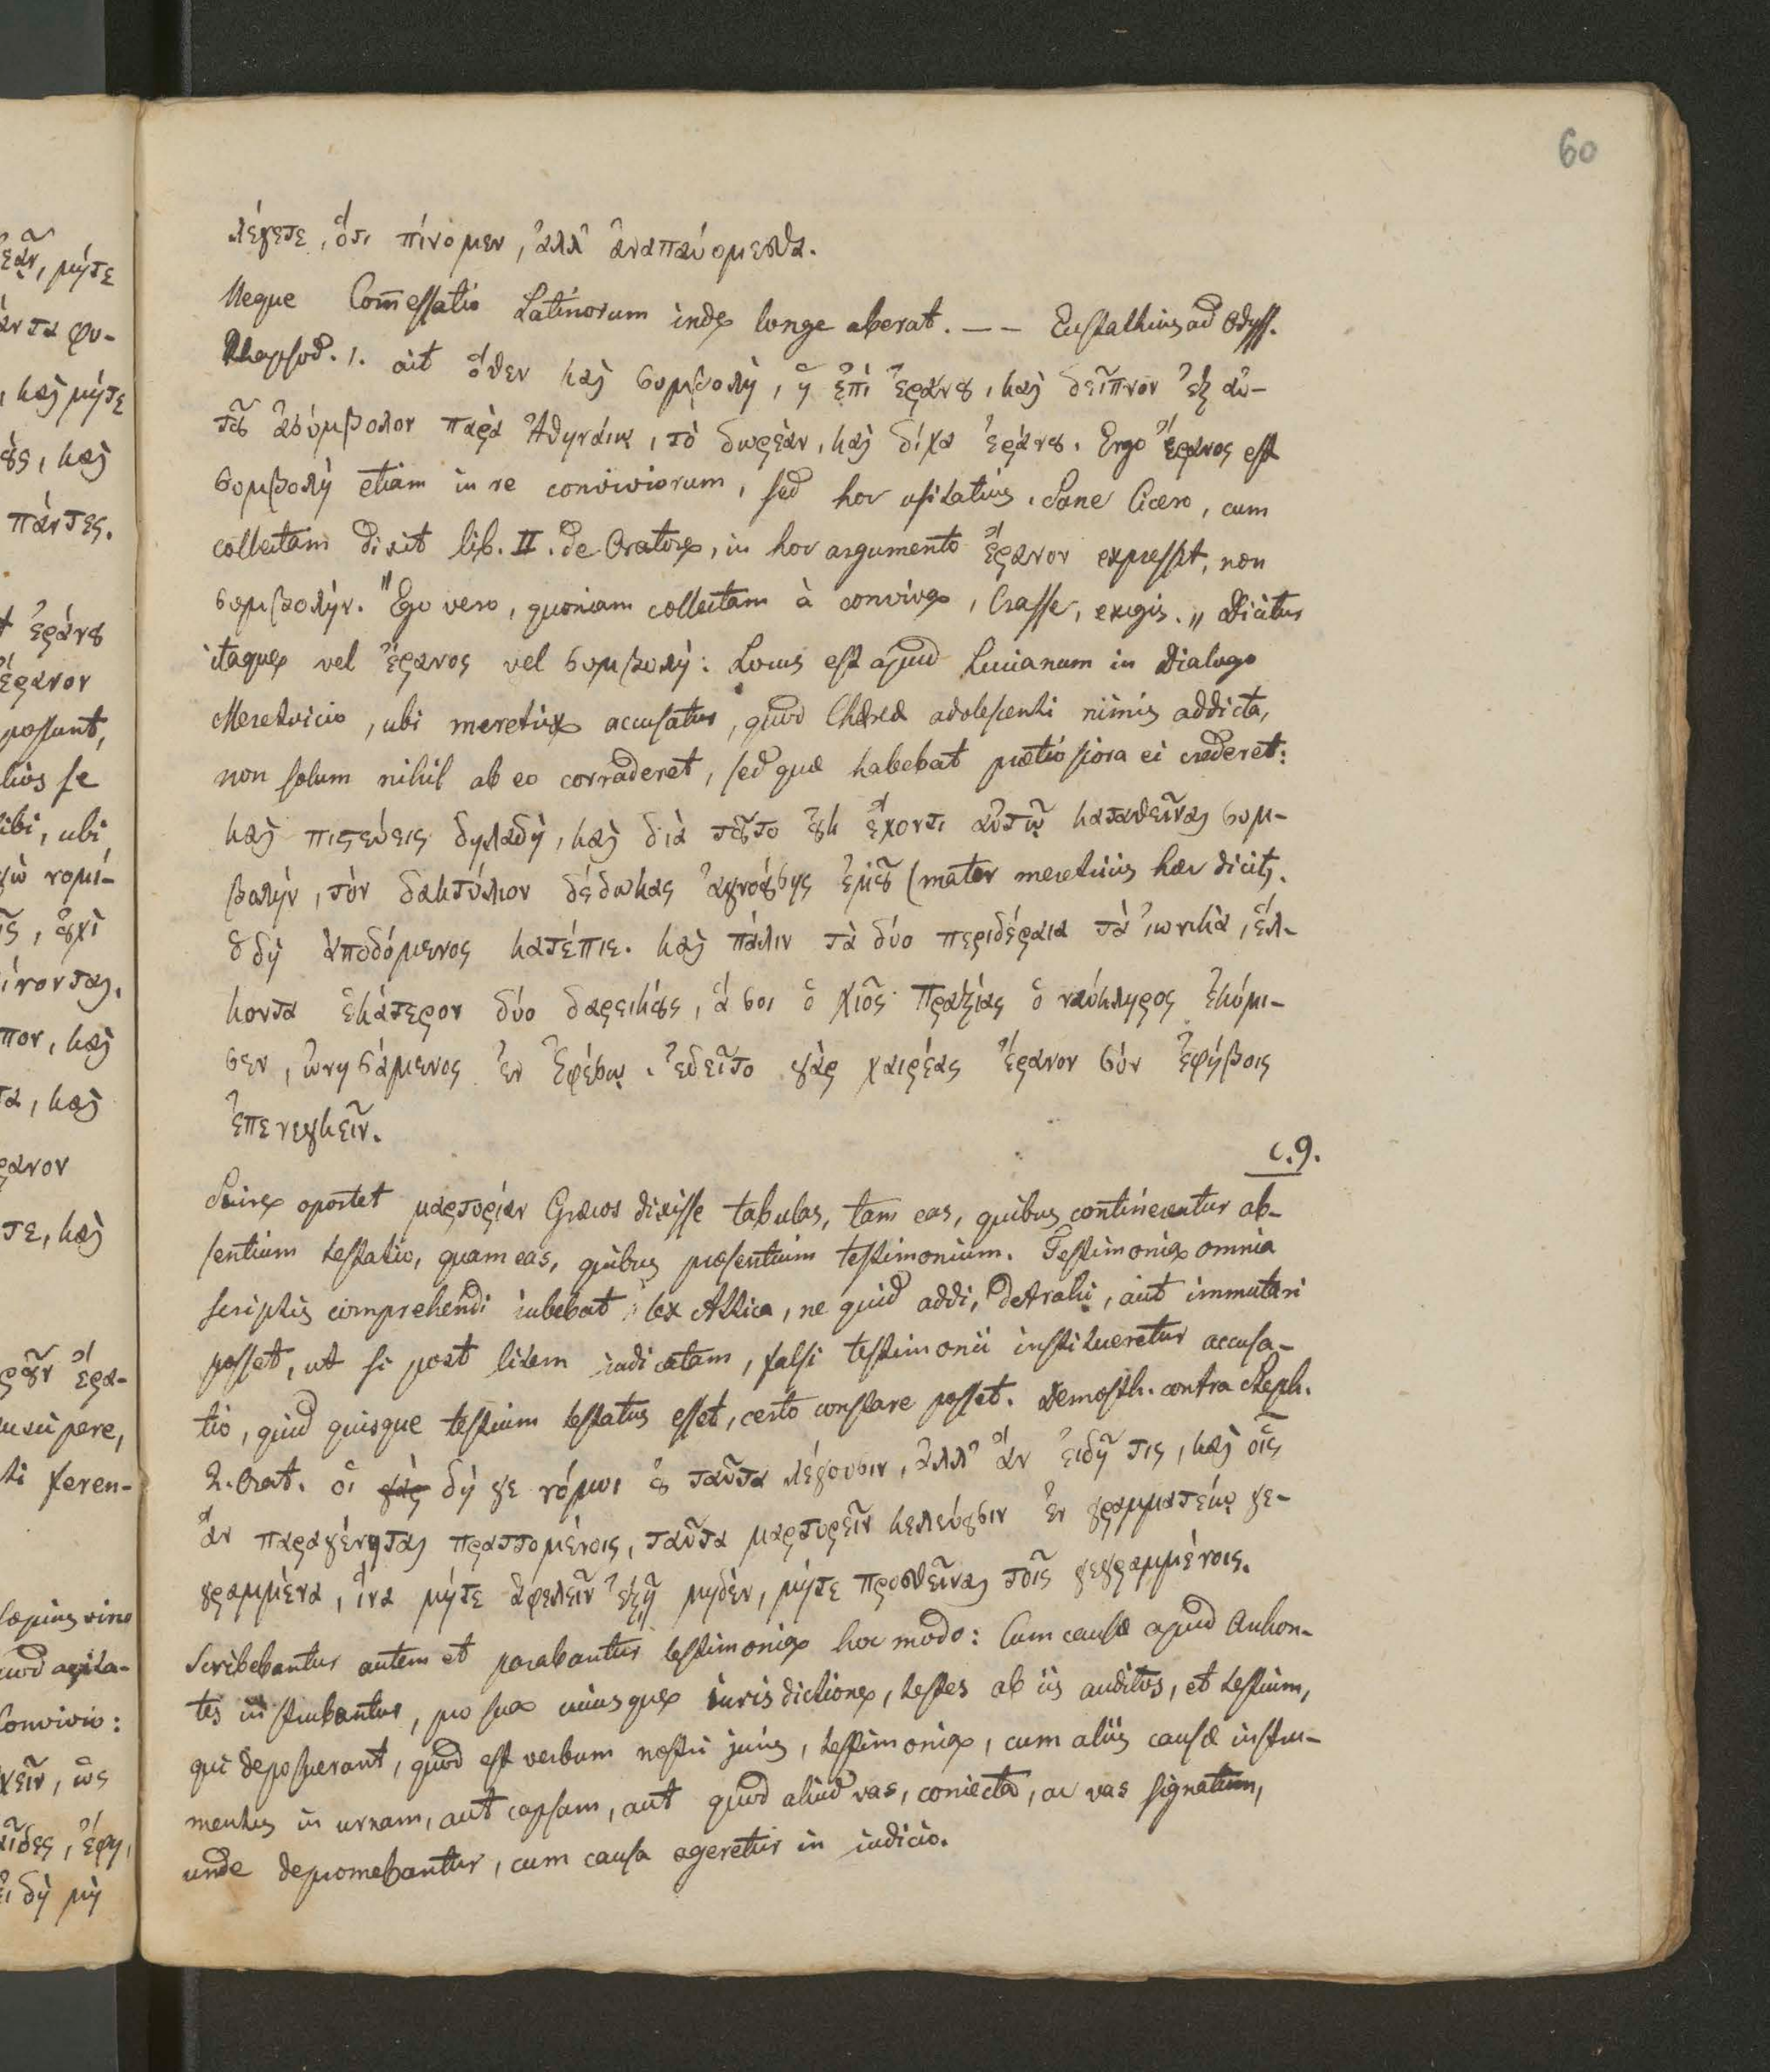 60
λέγετε, ὅτι πίνομεν, ἀλλ' ἀναπαύομεσθα.
Neque Com̄essatio Latinorum inde longe aberat. — — Eustathius ad Odyss.
Rhapsod. 1. ait ὅθεν καὶ συμβολὴ, ἡ ἐπὶ ἐράνȣ, καὶ δεῖπνον ἐξ αὐ-
τȣ͂ ἀσύμβολον παρὰ Ἀθηναίοις, τὸ δωρεὰν, καὶ δίχα ἐράνȣ. Ergo ἔρανος est
συμβολὴ etiam in re conviviorum, sed hoc usitatius. Sane Cicero, cum
collectam dixit lib. II. de Oratore, in hoc argumento ἔρανον expressit, non
συμβολήν. "Ego vero, quoniam collectam à conviva, Crasse, exigis." Dicitur
itaque vel ἔρανος vel συμβολὴ: Locus est apud Lucianum in Dialogo
Meretricio, ubi meretrix accusatur, quod Chæreæ adolescenti nimis addicta,
non solum nihil ab eo corraderet, sed quæ habebat prætiosiora ei crederet:
καὶ πιστεύεις δηλαδὴ, καὶ διὰ τȣ͂το ȣ̓κ ἔχοντι αὐτῷ καταθεῖναι συμ-
βολὴν, τὸν δακτύλιον δέδωκας ἀγνοȣ́σης ἐμȣ͂ (mater meretricis hæc dicit).
ὁ δὴ ἀποδόμενος κατέπιε. καὶ πάλιν τὰ δύο περιδέραια τὰ ἰωνικὰ, ἕλ-
κοντα ἑκάτερον δύο δαρεικȣ̀ς, ἅ σοι ὁ χιῶς Πραξίας ὁ ναύκληρος ἐκόμι-
σεν, ὠνησάμενος ἐν Ἐφέσῳ. ἐδεῖτο γὰρ χαιρέας ἔρανον σὺν ἐφήβοις
ἐπενεγκεῖν.
c. 9.
Scire oportet μαρτυρίαν Græcos dixisse tabulas, tam eas, quibus contineretur ab-
sentium testatio, quam eas, quibus præsentium testimonium. Testimonia omnia
scriptis comprehendi iubebat lex Attica, ne quid addi, detrahi, aut immutari
posset, ut si post litem iudicatam, falsi testimonii institueretur accusa-
tio, quid quisque testium testatus esset, certo constare posset. Demosth. contra Steph.
2. Orat. οἱ γὰρ δή γε νόμοι ȣ̓ ταῦτα λέγουσιν, ἀλλ' ἃν εἰδῇ τις, καὶ οἷς
ἂν παραγένηται πραττομένοις, ταῦτα μαρτυρεῖν κελεύȣσιν ἐν γραμματείῳ γε-
γραμμένα, ἵνα μήτε ἀφελεῖν ἐξῇ μηδὲν, μήτε προσθεῖναι τοῖς γεγραμμένοις.
Scribebantur autem et parabantur testimonia hoc modo: Cum causæ apud Archon-
tes instruebantur, pro sua cuiusque iurisdictione, testes ab iis auditos, et testium,
qui deposuerant, quod est verbum nostri juris, testimonia, cum aliis causæ instru-
mentis in urnam, aut capsam, aut quod aliud vas, coniecta, ac vas signatum,
unde depromebantur, cum causa ageretur in iudicio.